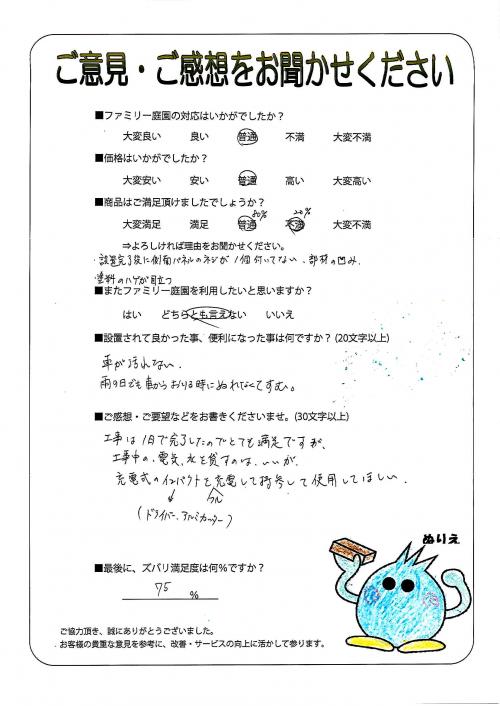 ご意見・ご感想をお聞かせください
■ファミリー庭園の対応はいかがでしたか？
大変良い 良い 普通 不満 大変不満
■価格はいかがでしたか？
大変安い 安い 普通 高い 大変高い
■商品はご満足頂けましたでしょうか？
80% 20%
大変満足 満足 普通 不満 大変不満
⇒よろしければ理由をお聞かせください。
・設置完了後に側面パネルのネジが1個付いてない、部材の凹み、
塗料のハゲが目立つ
■またファミリー庭園を利用したいと思いますか？
はい どちらとも言えない いいえ
■設置されて良かった事、便利になった事は何ですか？(20文字以上)
車が汚れない、
雨の日でも車からおりる時にぬれなくてすむ。
■ご感想・ご要望などをお書きくださいませ。(30文字以上)
工事は1日で完了したのでとても満足ですが、
工事中の、電気、水を貸すのは、いいが、
充電式のインパクトを充電して持参して使用してほしい、
(ドライバー、アルミカッター)
ぬりえ
■最後に、ズバリ満足度は何％ですか？
75 %
ご協力頂き、誠にありがとうございました。
お客様の貴重な意見を参考に、改善・サービスの向上に活かして参ります。